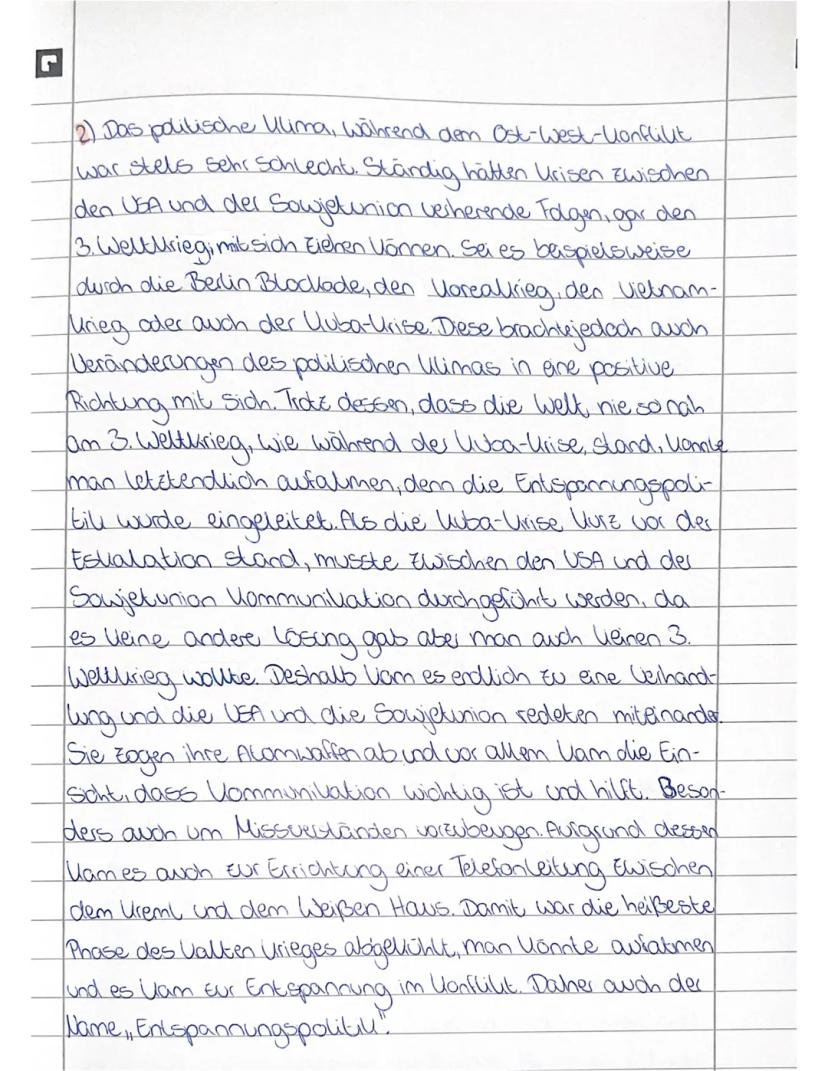 2) Das politische Klima, während dem Ost-West-Konflikt
war stets sehr schlecht. Ständig hätten Krisen zwischen
den USA und der Sowjetunion verherende Folgen, gar den
3. Weltkrieg, mit sich ziehen können. Sei es beispielsweise
durch die Berlin Blockade, den Koreakrieg, den Vietnam-
krieg oder auch der Kuba-Krise. Diese brachte jedoch auch
Veränderungen des politischen Klimas in eine positive
Richtung mit sich. Trotz dessen, dass die Welt, nie so nah
am 3. Weltkrieg, wie während der Kuba-Krise, stand, konnte
man letztendlich aufatmen, denn die Entspannungspoli-
tik wurde eingeleitet. Als die Kuba-Krise kurz vor der
Eskalation stand, musste zwischen den USA und der
Sowjetunion Kommunikation durchgeführt werden, da
es keine andere Lösung gab aber man auch keinen 3.
Weltkrieg wollte. Deshalb kam es endlich zu eine Verhand-
lung und die USA und die Sowjetunion redeten miteinander.
Sie zogen ihre Atomwaffen ab und vor allem kam die Ein-
sicht, dass Kommunikation wichtig ist und hilft. Beson-
ders auch um Missverständen vorzubeugen. Aufgrund dessen
kam es auch zur Errichtung einer Telefonleitung zwischen
dem Kreml und dem Weißen Haus. Damit war die heißeste
Phase des kalten Krieges abgekühlt, man konnte aufatmen
und es kam zur Entspannung im Konflikt. Daher auch der
Name „Entspannungspolitik".